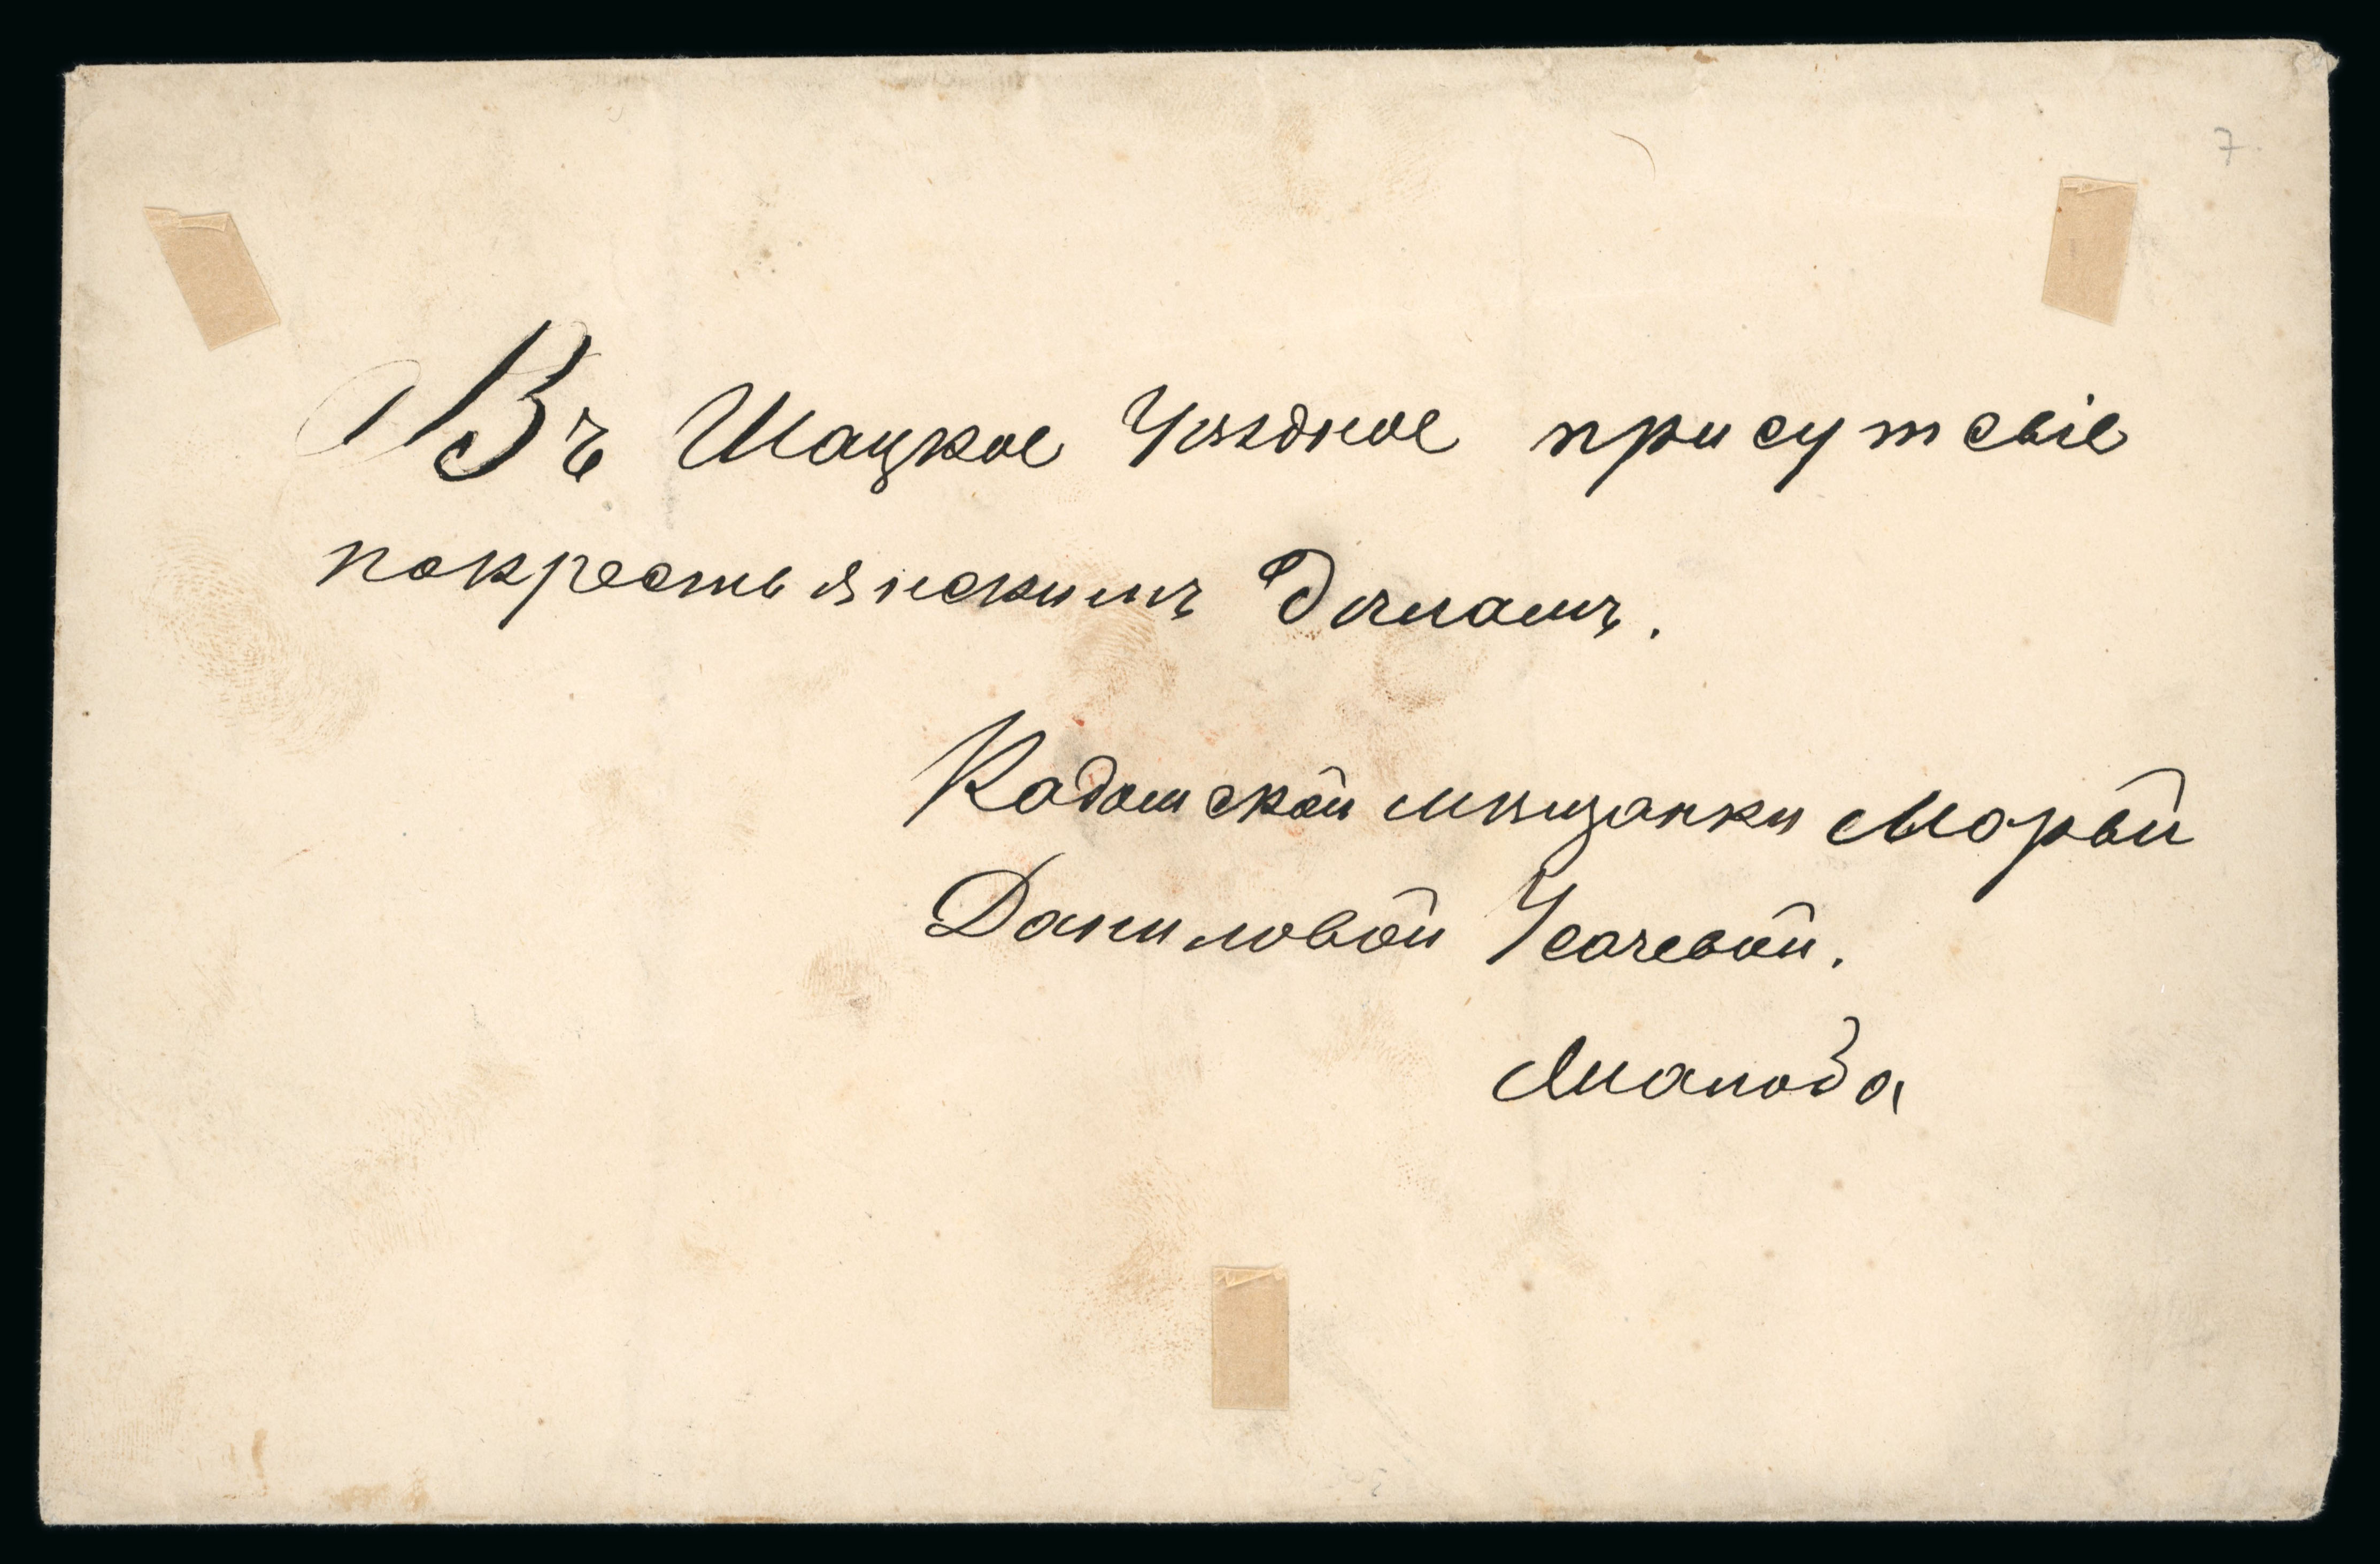 7
Въ Шацкое Уѣздное присутсвіе
покрестьянскимъ Дѣламъ.
Кадомской мѣщанки Марьи
Даниловой Усачевой.